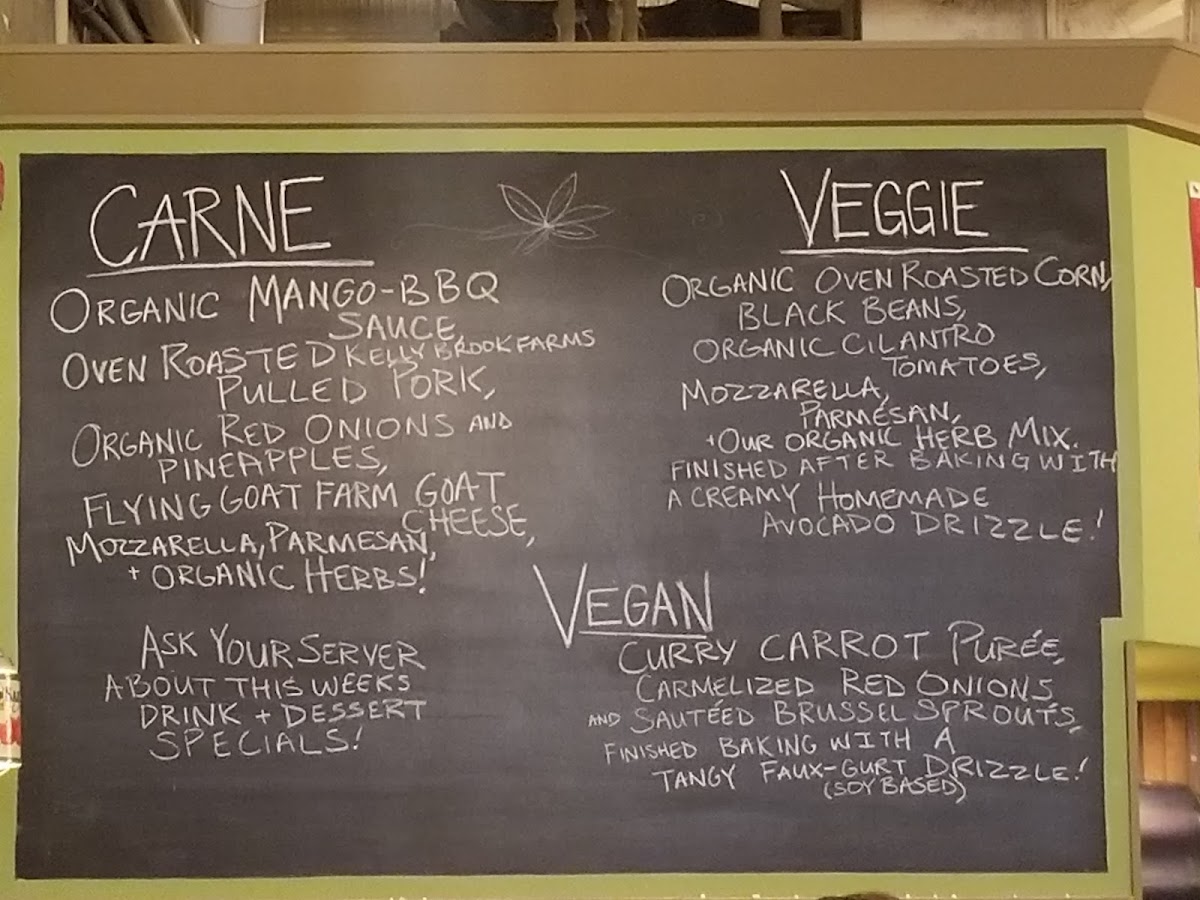 CARNE
ORGANIC MANGO-BBQ
SAUCE,
OVEN ROASTED KELLY BROOK FARMS
PULLED PORK,
ORGANIC RED ONIONS AND
PINEAPPLES,
FLYING GOAT FARM GOAT
CHEESE,
MOZZARELLA, PARMESAN,
+ ORGANIC HERBS!
ASK YOUR SERVER
ABOUT THIS WEEKS
DRINK + DESSERT
SPECIALS!
VEGGIE
ORGANIC OVEN ROASTED CORN,
BLACK BEANS,
ORGANIC CILANTRO
TOMATOES,
MOZZARELLA,
PARMESAN,
+OUR ORGANIC HERB MIX.
FINISHED AFTER BAKING WITH
A CREAMY HOMEMADE
AVOCADO DRIZZLE!
VEGAN
CURRY CARROT PURÉE,
CARMELIZED RED ONIONS
AND SAUTÉED BRUSSEL SPROUTS,
FINISHED BAKING WITH A
TANGY FAUX-GURT DRIZZLE!
(SOY BASED)